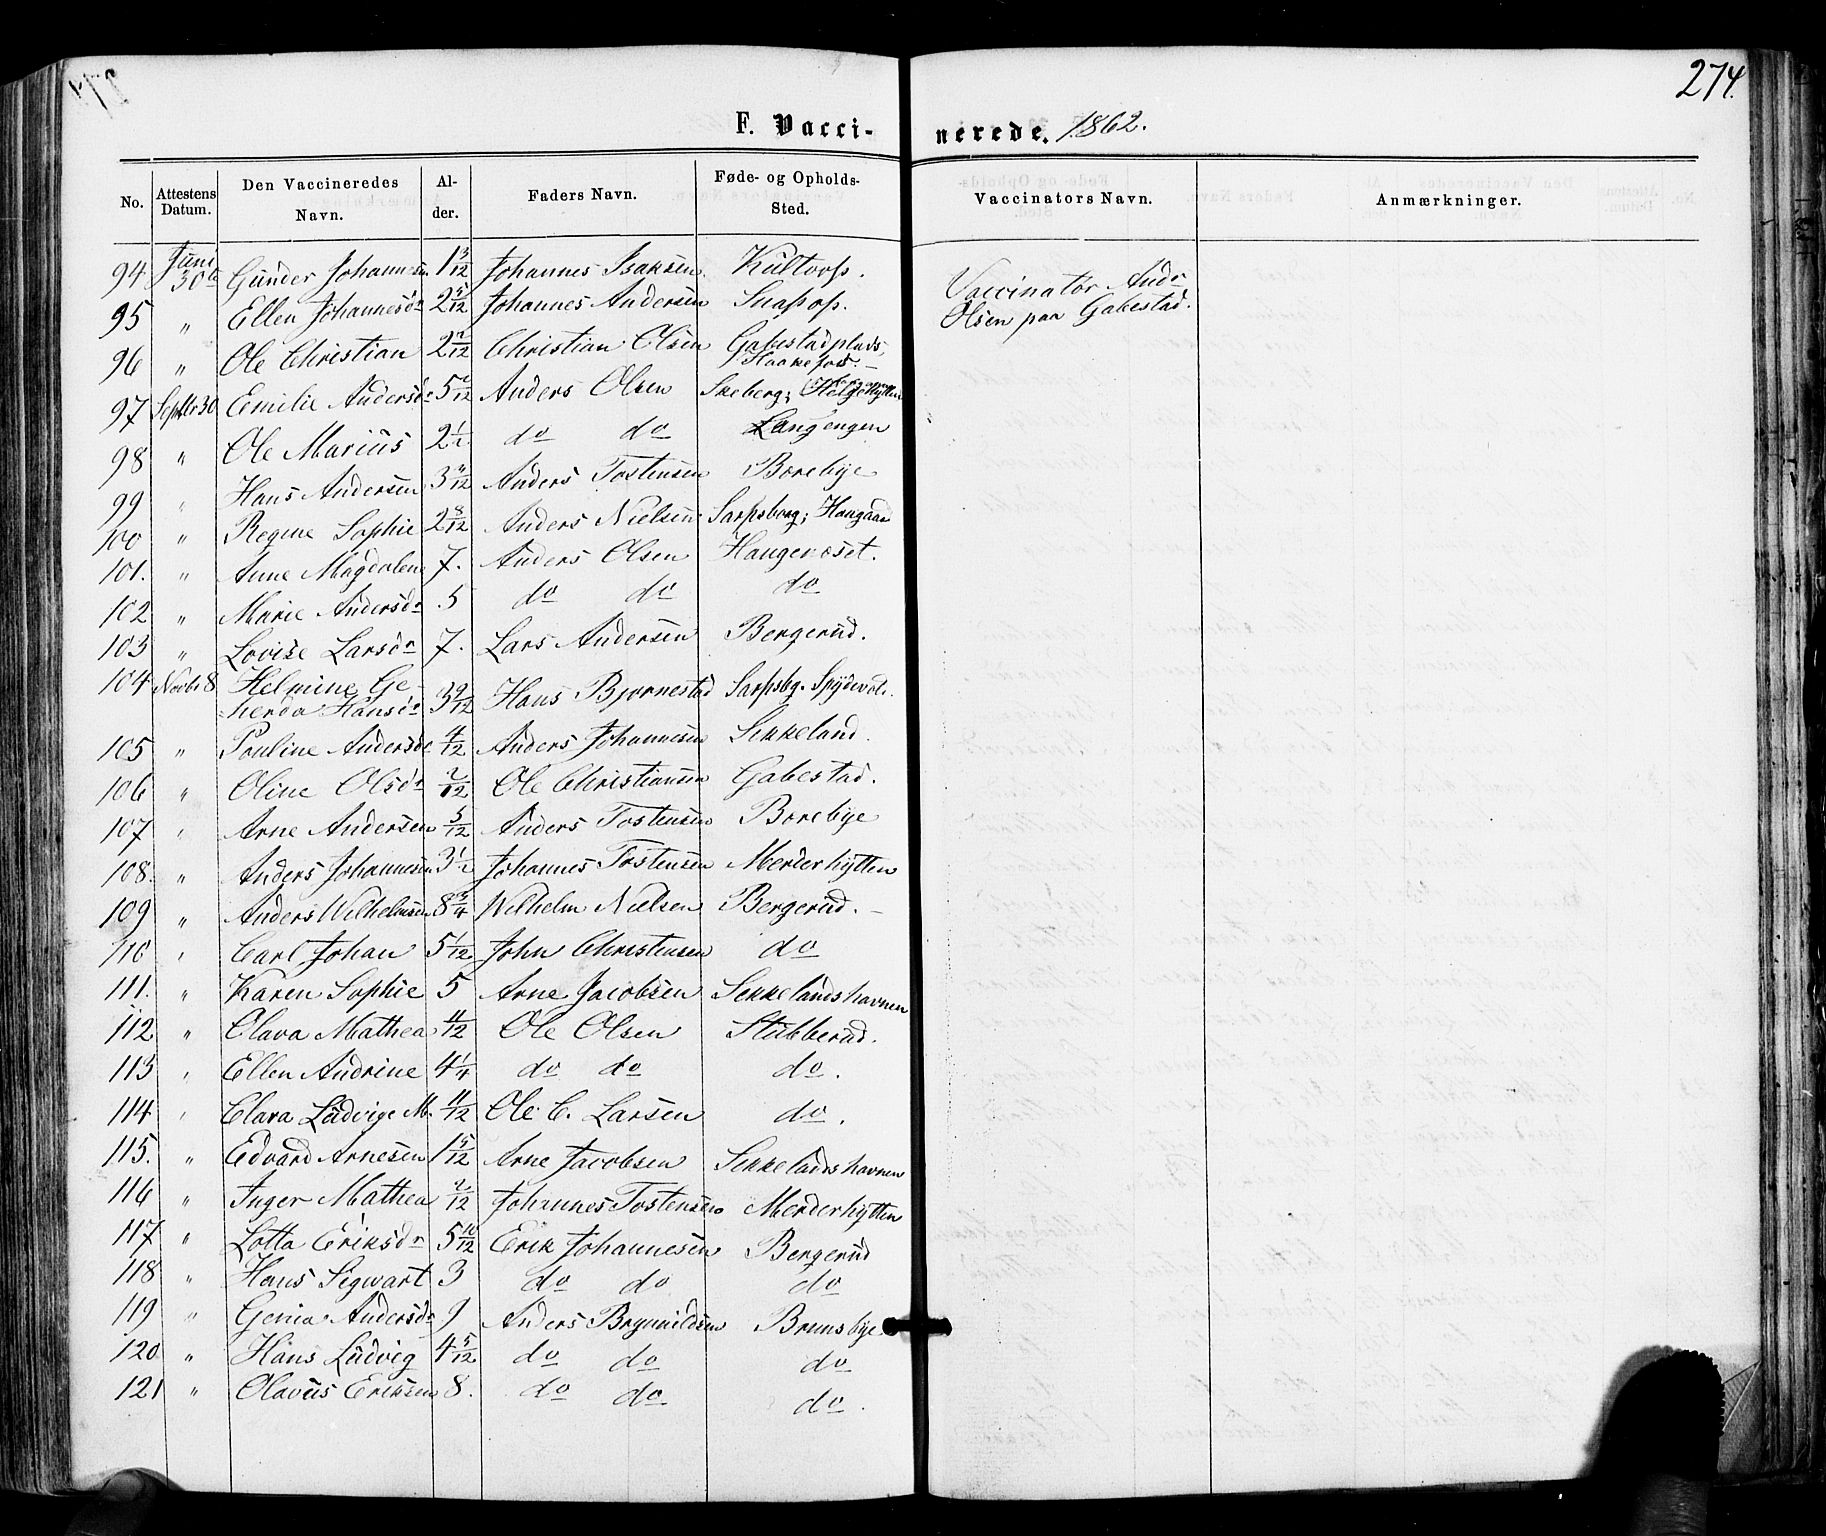 274.
F. Vacci- nerede. 1862.
No. Attestens Datum. Den Vaccineredes Navn. Al-der. Faders Navn. Føde- og Opholds-Sted. Vaccinators Navn. Anmærkninger.
94 Juni 30te Gunder Johannesen 1 3/12 Johannes Isaksen Kultorp. Vaccinatør Andr
95 " Ellen Johannesdr 2 5/12 Johannes Andersen Snapop. Olsen paa Gabestad.
96 " Ole Christian 2 2/12 Christian Olsen Gabestadplads, Haakefost.
97 Septbr 30 Emilie Andersdr 5 6/12 Anders Olsen Skeberg;
98 " Ole Marius 2 1/2 do do Langengen
99 " Hans Andersen 3 11/12 Anders Tostensen Borebye
100 " Regine Sophie 2 8/12 Anders Nielsen Sarpsborg; Haugaard
101. " Anne Magdalene 7. Anders Olsen Haugeroset.
102 " Marie Andersdr 5 do do do
103 " Lovise Larsdr 7. Lars Andersen Bergerud.
104 Novbr 8 Helmine Ge-
herda Hansdr 3 9/12 Hans Bjørnestad Sarpsbg. Spydevold.
105 " Pauline Andersdr 4/12 Anders Johannesen Sikkeland.
106 " Oline Olsdr 2/12 Ole Christiansen Gabestad.
107 " Arne Andersen 5/12 Anders Tostensen Borebye
108. " Anders Johannesen 3 1/2 Johannes Tostensen Merderhytten
109 " Anders Wilhelmsen 8 3/4 Wilhelm Nielsen Bergerud. –
110 " Carl Johan 5 1/12 John Christensen do
111. " Karen Sophie 5 Arne Jacobsen Sikkelandshavnen
112 " Olava Mathea 11/12 Ole Olsen Stubberud.
113 " Ellen Andrine 4 1/4 do do do.
114 " Clara Ludvige M. 11/12 Ole C. Larsen do.
115. " Edvard Arnesen 1 5/12 Arne Jacobsen Sikkelandshavnen
116 " Inger Mathea 2/12 Johannes Tostensen Merderhytten
117 " Lotta Eriksdr 5 10/12 Erik Johannesen Bergerud
118 " Hans Sigwart 3 do do do
119 " Genia Andersdr 9 Anders Brynnildsen Brunsbye
120 " Hans Ludvig 4 5/12 do do do
121 " Olavus Eriksen 8. do do do.